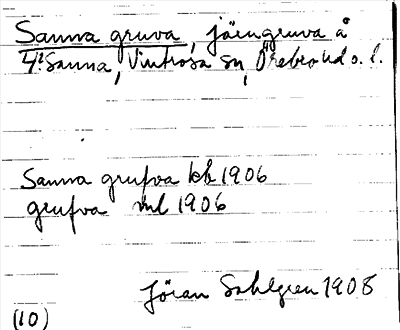 Sanna gruva, järngruva å
4:1 Sanna, Vintrosa sn, Örebro hd o. l.
Sanna grufva kb 1906
grufva ml 1906
Jöran Sahlgren 1908
(10)